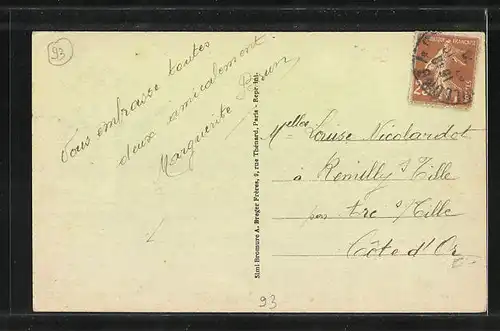 93
Vous embrasse toutes
deux amicalement
Marguerite
Simi-Bromure A. Breger Frères, 9, rue Thénard, Paris - Repr. int.
Melles Louise Nicolardot
à Remilly s/ Tille
par Arc s/ Tille
Côte d'Or
93